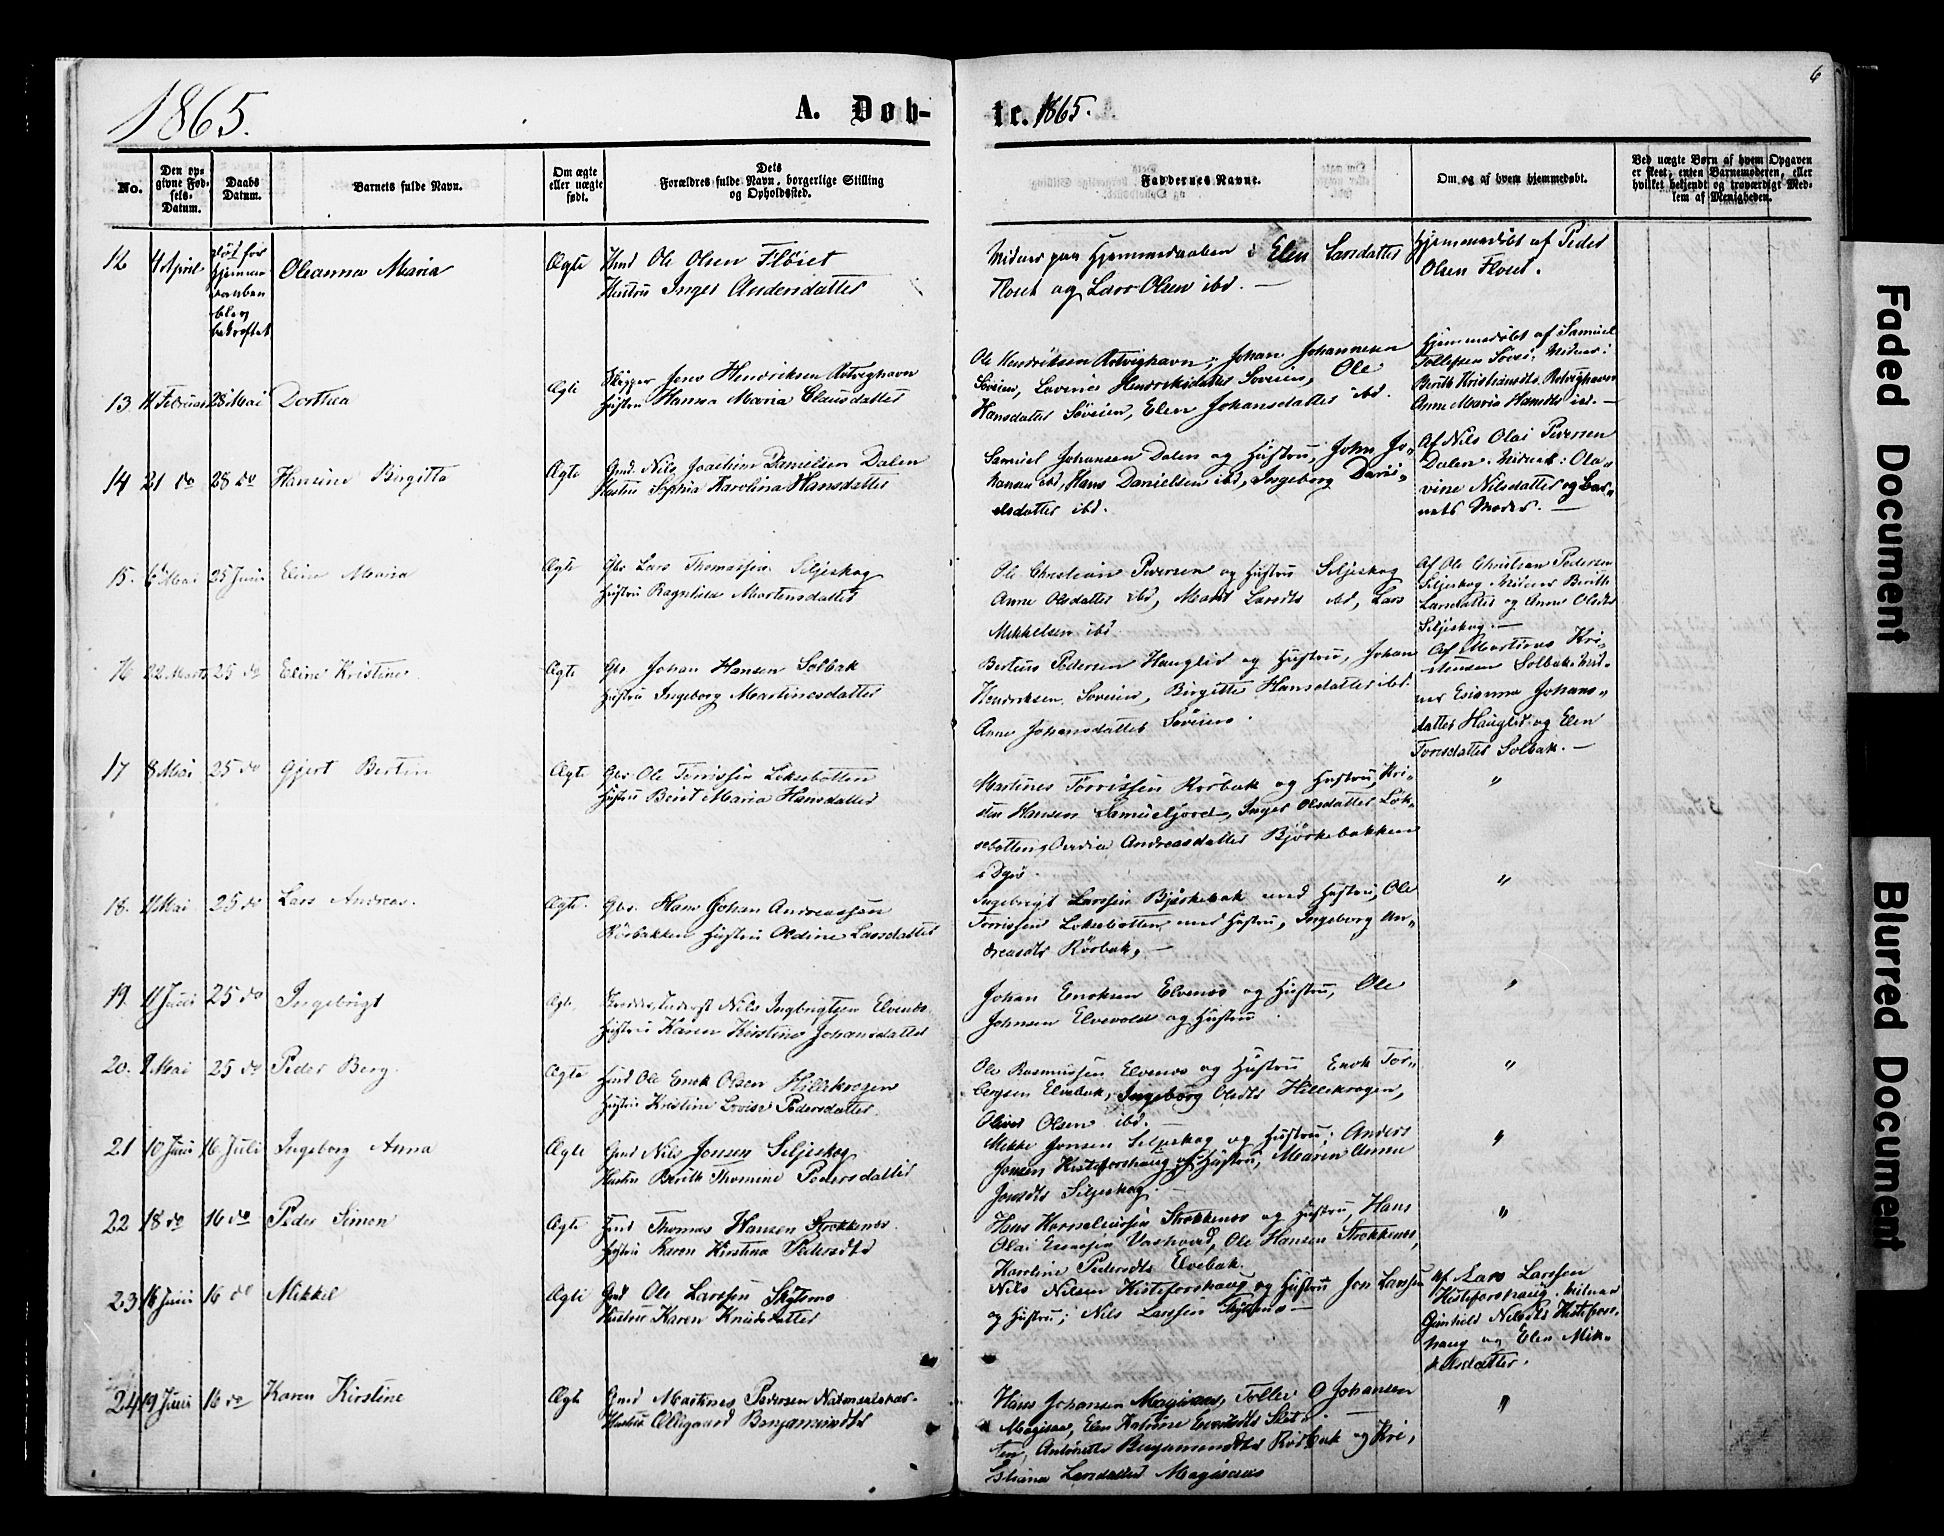 1865.
A. Døb-
te. 1865.
6
No.
Den op-
givne Fød-
sels-
Datum.
Daabs
Datum.
Barnets fulde Navn.
Om ægte
eller uægte
født.
Dets
Forældres fulde Navn, borgerlige Stilling
og Opholdssted.
Faddernes Navne.
Om og af hvem hjemmedøbt.
Ved uægte Børn af hvem Opgaven
er skeet, enten Barnemoderen, eller
hvilket bekjendt og troværdigt Med-
lem af Menigheden.
12 4 April
Oleanna Maria
Ægte
Hmd Ole Olsen Flöiet
Hustru Inger Andersdatter
Vidner paa Hjemmedaaben : Elen Larsdatter
og Lars Olsen ibd. —
Hjemmedøbt af Peder
Olsen
13 11 Februar 28 Mai Dorthea
Ægte
Jens Hendriksen
Hustru Hanna Maria Clausdatter
Ole Hendriksen Johan Johannesen
Søveien, Hendriksdatter Søveien, Ole
Hansdatter Søveien, Elen Johansdatter ibd.
Hjemmedøbt af Samuel
Tollefsen Vidner:
Berith Kristiansdtr.
Anne Maria Hansdtr ibd. —
14 21 do 28 do Hansine Birgitte
Ægte
Gmd. Nils Joachim Danielsen Dalen
Hustru Sophia Karolina Hansdatter
Samuel Johansen Dalen og Hustru, John Jo-
hansen ibd, Hans Danielsen ibd, Ingeborg Dani-
elsdatter ibd.
Af Nils Olai Pedersen
Dalen. Vidner: Ola-
vine Nilsdatter og Bar-
nets Moder. —
15. 6 Mai 25 Juni Eline Maria
Ægte
Gbr Lars Thomassen Seljeskog
Hustru Ragnhilda Mortensdatter
Ole Christian Pedersen og Hustru Seljeskog
Anne Olsdatter ibd, Larsdtr ibd, Lars
Mikkelsen ibd.
Af Ole Christian Pedersen
Seljeskog Vidner Berith
Larsdatter og Anne Olsdtr
Seljeskog. —
16 22 Marts 25 do Eline Kristine
Ægte
Gbr Johan Hansen Solbak
Hustru Ingeborg Martinesdatter
Bertius Pedersen Hauglid og Hustru, Johan
Hendriksen Søveien, Birgitte Hansdatter ibd.
Anne Johansdatter Søveien.
Af Martinus Kri-
stensen Solbak. Vid-
ner Johans-
datter Hauglid og Elen
Torrisdatter Solbak. —
17 8 Mai 25 do Gjert Bertin
Ægte
Gbr Ole Torrissen Løksebotten
Hustru Berit Maria Hansdatter
Martines Torrissen Rørbak og Hustru, Kri-
sten Hansen Samueljord, Inger Olsdatter Løk-
sebotten, Andreasdatter Bjørkebakken
i Dyrø.
"
18. 11 Mai 25 do Lars Andreas.
Ægte.
Gbr. Hans Johan Andreassen
Rörbakken Hustru Oldine Larsdatter
Ingebrigt Larssen Bjørkebak med Hustru, Ole
Torrissen Løksebotten med Hustru, Ingeborg An-
dreasdtr Rørbak. —
"
19. 11 Juni 25 do Ingebrigt
Ægte
Nils Ingbrigtsen Elvenæs
Hustru Karen Kirstine Johansdatter
Johan Enoksen Elvenes og Hustru, Ole
Johnsen Elvevold og Hustru
"
20. 9 Mai 25 do Peder Berg.
Ægte
Hmd Ole Enok Olsen Hillekrogen
Hustru Kristine Lovise Pedersdatter
Ole Rasmussen Elvenes og Hustru Enok Tor-
bergsen Elvebak, Ingeborg Olsdtr Hillekrogen,
Oliver Olsen ibd. —
"
21 10 Juni 16 Juli Ingeborg Anna
Ægte
Gmd Nils Jonsen Seljeskog
Hustru Berith Thomine Pedersdatter
Mikke Jonsen Seljeskog og Hustru; Anders
Jonsen Kisteforshaug og Hustru, Maren Anna
Jonsdtr Seljeskog.
"
22 18 do 16 do Peder Simon
Ægte
Hmd Thomas Hansen Stokkenes.
Hustru Karen Kirstina Pedersdtr
Hans Korneliussen Stokkenes og Hustru, Hans
Olai Ole Hansen Stokkenes,
Karoline Pedersdtr Elvebak.
"
23 16 Juni 16 do Mikkel
Ægte
Gmd Ole Larssen
Hustru Karen Knudsdatter
Nils Nilsen Kisteforshaug og Hustru Jon Larssen
og Hustru; Nils Larssen —
Af Lars Larssen
Kisteforshaug. Vidner
Gunhild Nilsdtr Kistefors-
haug og Elen Mik-
kelsdatter.
24 19 Juni 16 do Karen Kirstine
Ægte
Gmd Martines Pedersen
Hustru Benjamindtr
Hans Johansen Tollev O Johansen
Elen Katrine
Antonette Benjamindtr Rørbak og Kri-
stiana Larsdatter
"
Faded Document
Blurred Document